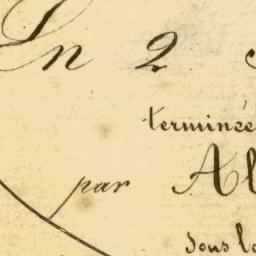 En 2
terminée
par Al
sous l